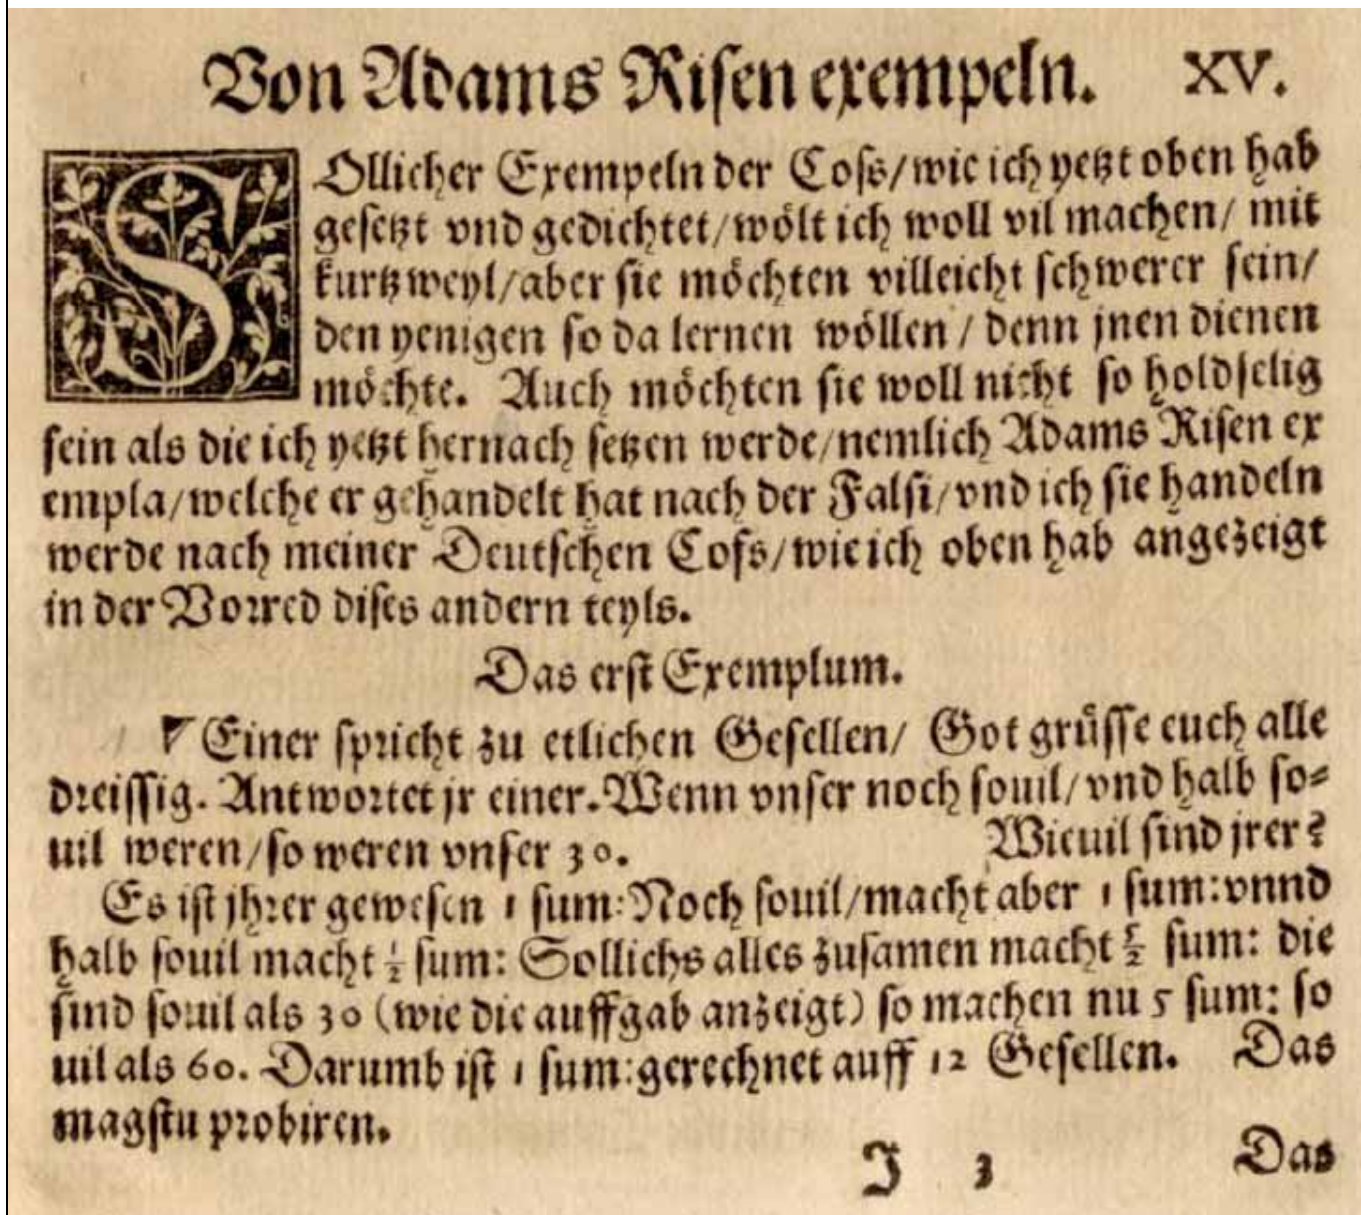 Von Adams Risen exempeln. XV.
SOllicher Exempeln der Coss/wie ich yetzt oben hab
gesetzt vnd gedichtet/wölt ich woll vil machen/ mit
kurtzweyl/aber sie möchten villeicht schwerer sein/
den yenigen so da lernen wöllen / denn jnen dienen
möchte. Auch möchten sie woll nicht so holdselig
sein als die ich yetzt hernach setzen werde/nemlich Adams Risen ex
empla/welche er gehandelt hat nach der Falsi/vnd ich sie handeln
werde nach meiner Deutschen Coss/wie ich oben hab angezeigt
in der Vorred dises andern teyls.
Das erst Exemplum.
Einer spricht zu etlichen Gesellen/ Got grüsse euch alle
dreissig. Antwortet jr einer. Wenn vnser noch souil/vnd halb so⸗
uil weren/so weren vnser 30. Wieuil sind jrer?
Es ist jhrer gewesen 1 sum: Noch souil/macht aber 1 sum: vnnd
halb souil macht ½ sum: Sollichs alles zusamen macht 5/2 sum: die
sind souil als 30 (wie die auffgab anzeigt) so machen nu 5 sum: so
uil als 60. Darumb ist 1 sum: gerechnet auff 12 Gesellen. Das
magstu probiren.
J 3 Das